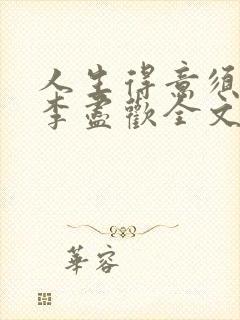 人生得意须
李盡歡全文
華容